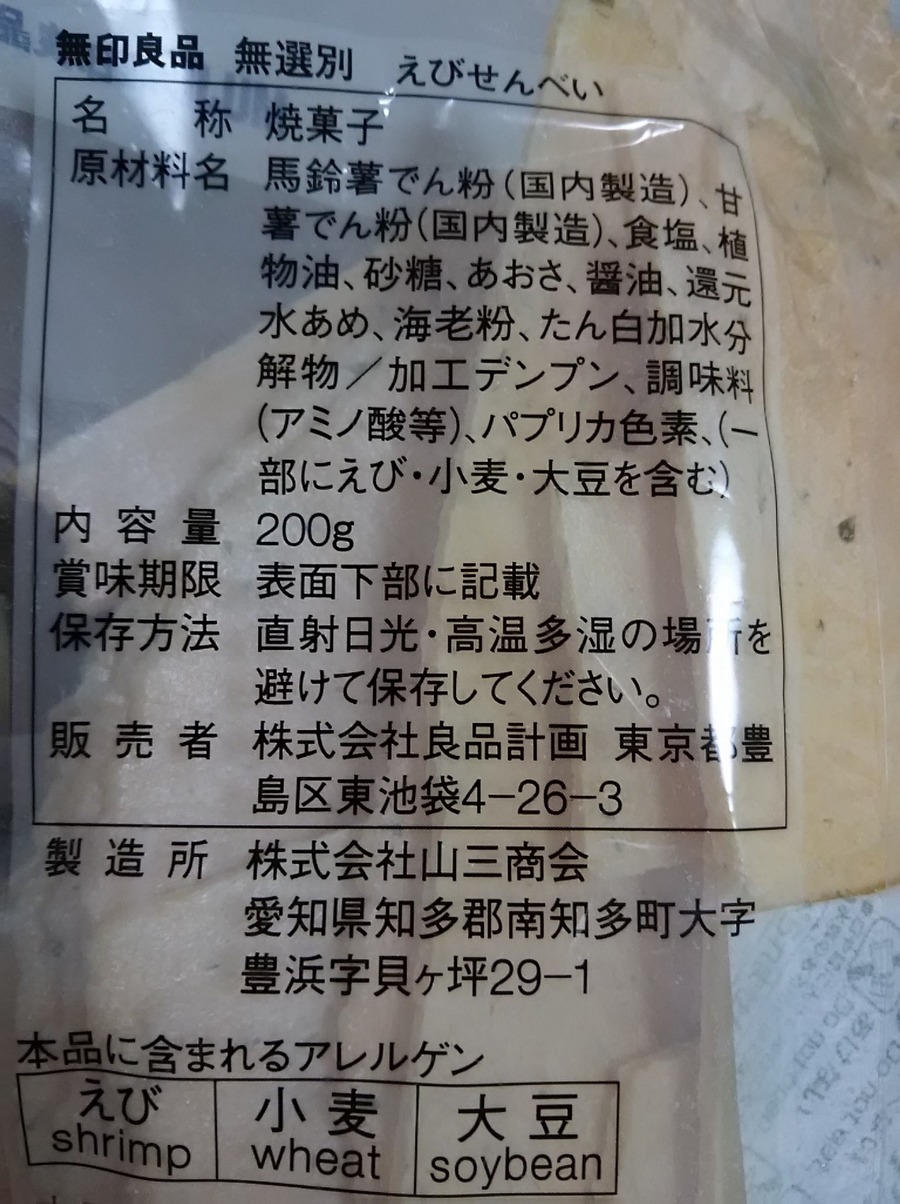 無印良品 無選別 えびせんべい
名称 焼菓子
原材料名 馬鈴薯でん粉(国内製造)、甘
薯でん粉(国内製造)、食塩、植
物油、砂糖、あおさ、醤油、還元
水あめ、海老粉、たん白加水分
解物／加工デンプン、調味料
(アミノ酸等)、パプリカ色素、(一
部にえび・小麦・大豆を含む)
内容量 200g
賞味期限 表面下部に記載
保存方法 直射日光・高温多湿の場所を
避けて保存してください。
販売者 株式会社良品計画 東京都豊
島区東池袋4-26-3
製造所 株式会社山三商会
愛知県知多郡南知多町大字
豊浜字貝ヶ坪29-1
本品に含まれるアレルゲン
えび 小麦 大豆
shrimp wheat soybean